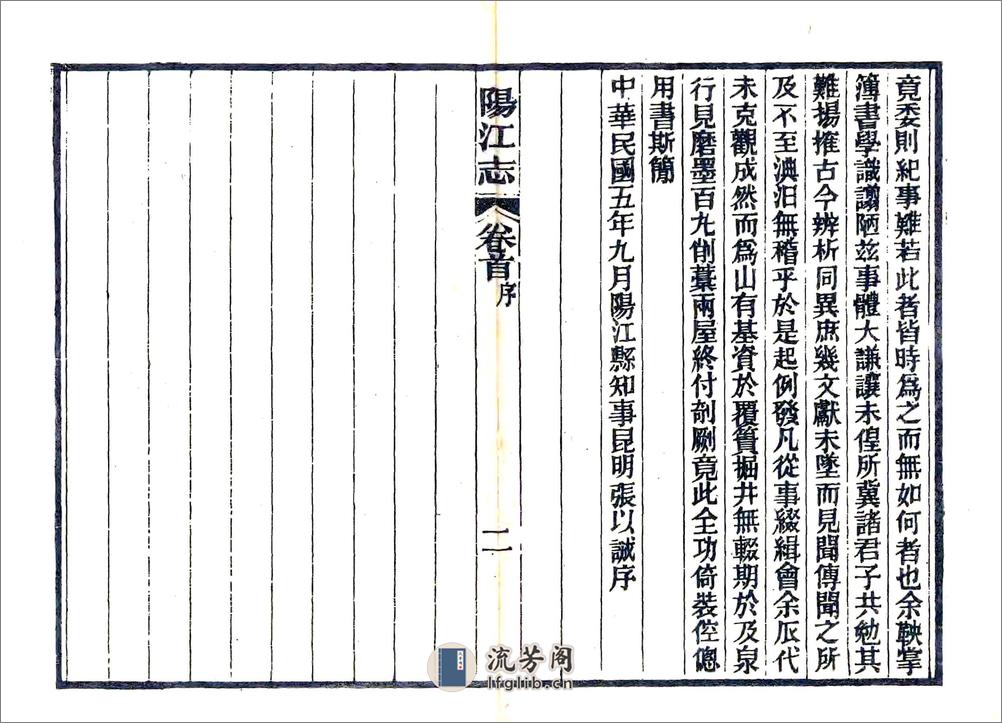 竟委則紀事難若此者皆時爲之而無如何者也余鞅掌
簿書學識謭陋茲事體大謙讓未遑所冀諸君子共勉其
難揚搉古今辨析同異庶幾文獻未墜而見聞傳聞之所
及不至淟汩無稽乎於是起例發凡從事綴緝會余瓜代
未克觀成然而爲山有基資於覆簣掘井無輟期於及泉
行見磨墨百九削藁兩屋終付剞劂竟此全功倚裝倥傯
用書斯簡
中華民國五年九月陽江縣知事昆明張以誠序
陽江志 卷首 序 二
流芳阁
lfglib.cn